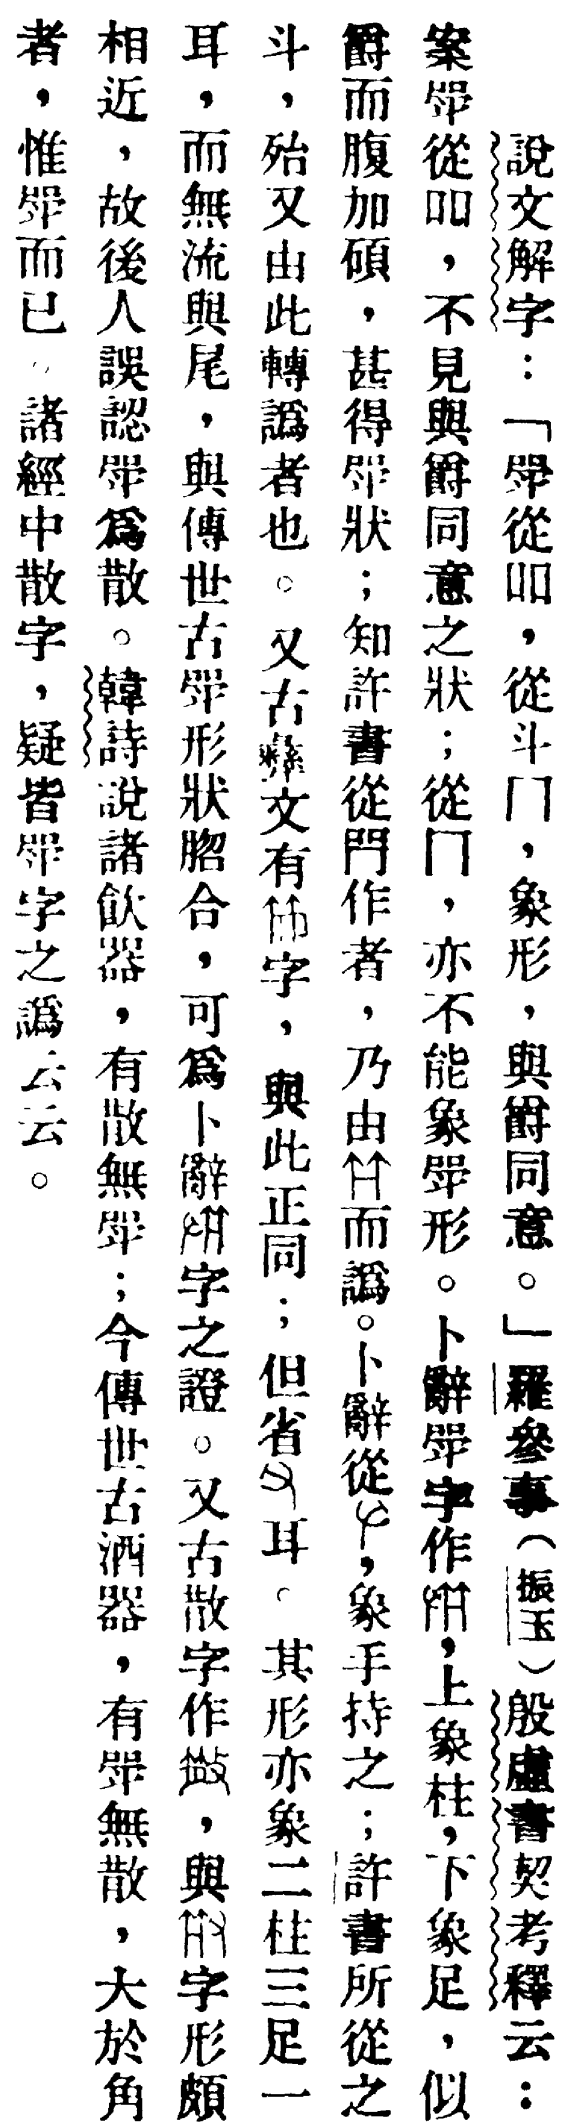 說文解字：「斝從吅，從斗冂，象形，與爵同意。」羅參事（振玉）殷虛書契考釋云：
案斝從吅，不見與爵同意之狀；從冂，亦不能象斝形。卜辭斝字作，上象柱，下象足，似
爵而腹加碩，甚得斝狀；知許書從門作者，乃由而譌。卜辭從，象手持之；許書所從之
斗，殆又由此轉譌者也。又古彝文有字，與此正同；但省耳。其形亦象二柱三足一
耳，而無流與尾，與傳世古斝形狀脗合，可爲卜辭字之證。又古散字作，與字形頗
相近，故後人誤認斝爲散。韓詩說諸飲器，有散無斝；今傳世古酒器，有斝無散，大於角
者，惟斝而已。諸經中散字，疑皆斝字之譌云云。